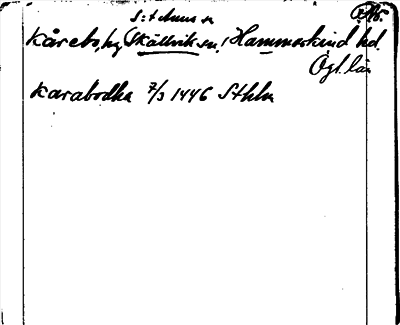 S:t Anna sn
Kårebo, hg, Skällvik sn, Hammarkind hd.
Ögl. län
Karabodha 7/3 1446 Sthlm